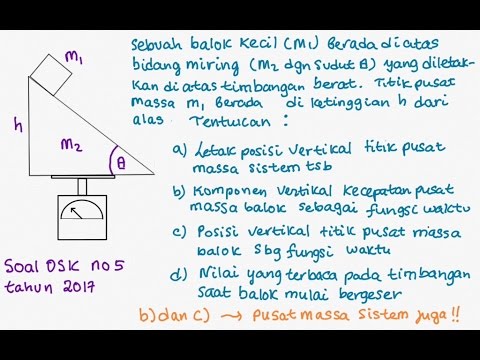 Sebuah balok kecil (M₁) Berada di atas
bidang miring (M₂ dgn sudut θ) yang diletak-
kan di atas timbangan berat. Titik pusat
massa m₁ Berada di ketinggian h dari
alas. Tentukan :
a) Letak posisi vertikal titik pusat
massa sistem tsb
b) Komponen vertikal kecepatan pusat
massa balok sebagai fungsi waktu
c) Posisi vertikal titik pusat massa
balok sbg fungsi waktu
d) Nilai yang terbaca pada timbangan
saat balok mulai bergeser
b) dan c) → pusat massa sistem juga !!
m₁
h
m₂
θ
Soal OSK no 5
tahun 2017